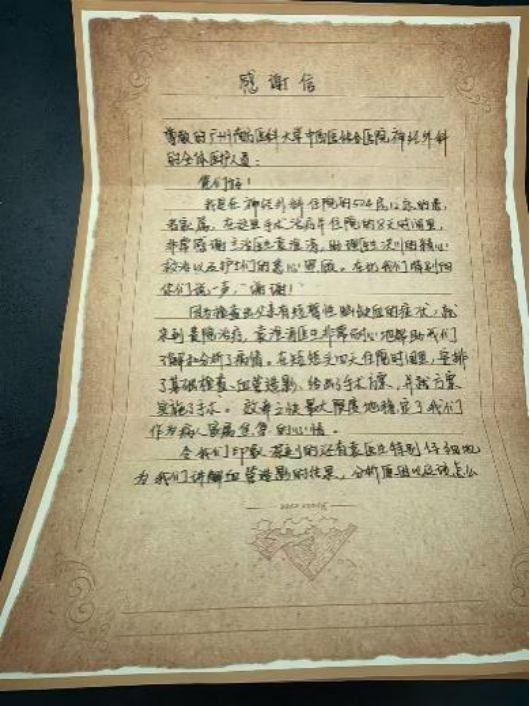 感谢信
尊敬的广州南方医科大学中西医结合医院神经外科
的全体医护人员：
您们好！
我是在神经外科住院的524房12床的患
者家属，在这里手术治疗住院的8天时间里，
非常感谢主治医生袁澄清，助理医生 的精心
救治以及护士们的悉心照顾。在此我们特别向
你们说一声，谢谢！
因为检查出父亲有短暂性脑缺血的症状，就
来到贵院治疗，袁澄清医生非常耐心地帮助我们
了解和分析了病情。在短短头四天住院时间里，安排
了基础检查、血管造影、给出了手术方案，并就方案
实施了手术。效率之快最大限度地稳定了我们
作为病人家属焦急的心情。
令我们印象深刻的还有袁医生特别仔细地
为我们讲解血管造影的结果，分析原因以及该怎么